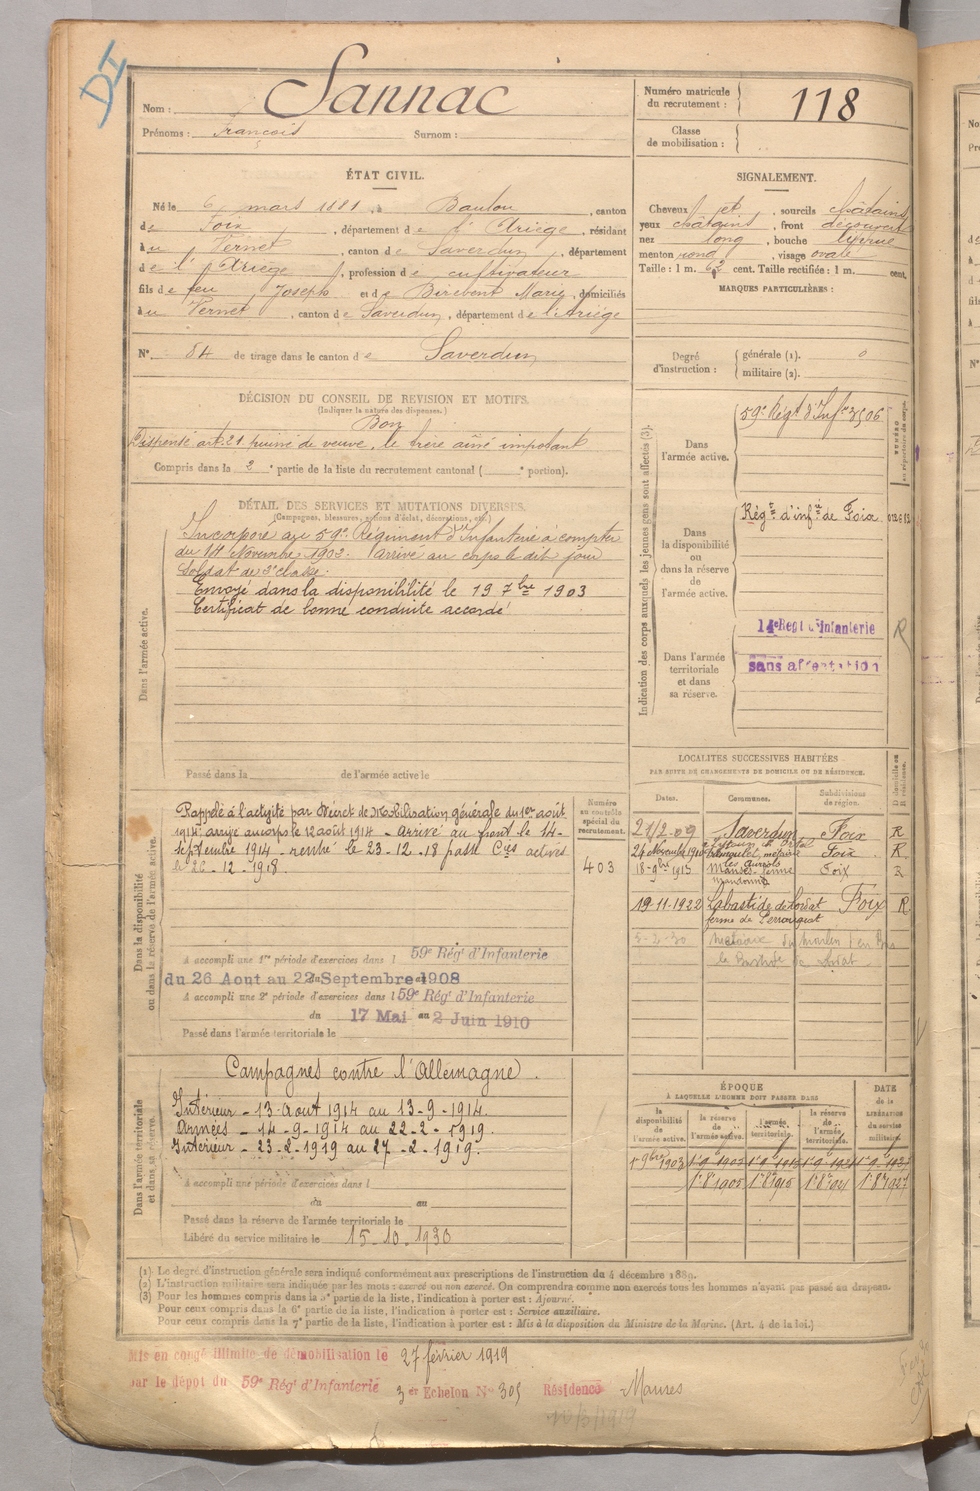 DI
Nom : Sannac
Prénoms : François Surnom :
Numéro matricule du recrutement : 118
Classe de mobilisation :
ÉTAT CIVIL.
Né le 6 mars 1881, à Baulou, canton
de Foix, département de l'Ariège, résidant
à u Vernet, canton de Saverdun, département
de l'Ariège, profession de cultivateur
fils de feu Joseph et de Birevent Marie, domiciliés
à u Vernet, canton de Saverdun, département de l'Ariège
N° 84 de tirage dans le canton de Saverdun
SIGNALEMENT.
Cheveux et sourcils châtains
yeux châtains, front découvert
nez long, bouche
menton rond, visage ovale
Taille : 1 m. 62 cent. Taille rectifiée : 1 m. cent.
MARQUES PARTICULIÈRES :
Degré d'instruction : générale (1). 0
militaire (2).
DÉCISION DU CONSEIL DE REVISION ET MOTIFS.
(Indiquer la nature des dispenses.)
Bon
Dispensé art. 21 puiné de veuve, le frère aîné impotent
Compris dans la 2e partie de la liste du recrutement cantonal ( e portion).
DÉTAIL DES SERVICES ET MUTATIONS DIVERSES.
(Campagnes, blessures, actions d'éclat, décorations, etc.)
Dans l'armée active.
Incorporé au 59e Régiment d'Infanterie à compter
du 14 Novembre 1902. arrivé au corps le dit jour
Soldat de 2e classe.
Envoyé dans la disponibilité le 19 7bre 1903
Certificat de bonne conduite accordé
Passé dans la de l'armée active le
Indication des corps auxquels les jeunes gens sont affectés (3).
Dans l'armée active.
59e Régt d'Infie 3506
NUMÉRO au répertoire du corps.
Dans la disponibilité ou dans la réserve de l'armée active.
Régt d'infie de Foix
Dans l'armée territoriale et dans sa réserve.
14e Regt d'Infanterie R
sans affectation
Dans la disponibilité ou dans la réserve de l'armée active.
Rappelé à l'activité par Décret de Mobilisation générale du 1er août
1914. arrivé au corps le 12 août 1914 - Arrivé au front le 14-
septembre 1914 - rentré le 23-12-18 passé Cies actives
le 26-12-1918.
Numéro au contrôle spécial du recrutement.
403
A accompli une 1re période d'exercices dans l 59e Régt d'Infanterie
du 26 Aout au 22 Septembre 1908
A accompli une 2e période d'exercices dans l 59e Régt d'Infanterie
du 17 Mai au 2 Juin 1910
Passé dans l'armée territoriale le
LOCALITÉS SUCCESSIVES HABITÉES
PAR SUITE DE CHANGEMENTS DE DOMICILE OU DE RÉSIDENCE.
Dates. Communes. Subdivisions de région. D domicile ou R résidence.
21/2-09 Saverdun Foix R
24 Novembre Foix R
18-9bre 1913 Foix R
19-11-1922 Labastide de Lordat Foix R
ferme de
5-2-30
Dans l'armée territoriale et dans sa réserve.
Campagnes contre l'Allemagne.
Intérieur - 13-Aout 1914 au 13-9-1914.
Armées - 14-9-1914 au 22-2-1919.
Intérieur - 23-2-1919 au 27-2-1919.
A accompli une période d'exercices dans l
du au
Passé dans la réserve de l'armée territoriale le
Libéré du service militaire le 15-10-1930
ÉPOQUE
À LAQUELLE L'HOMME DOIT PASSER DANS
DATE de la LIBÉRATION du service militaire.
la disponibilité de l'armée active. la réserve de l'armée active. l'armée territoriale. la réserve de l'armée territoriale.
1-9bre 1903
(1) Le degré d'instruction générale sera indiqué conformément aux prescriptions de l'instruction du 4 décembre 1889.
(2) L'instruction militaire sera indiquée par les mots : exercé ou non exercé. On comprendra comme non exercés tous les hommes n'ayant pas passé au drapeau.
(3) Pour les hommes compris dans la 5e partie de la liste, l'indication à porter est : Ajourné.
Pour ceux compris dans la 6e partie de la liste, l'indication à porter est : Service auxiliaire.
Pour ceux compris dans la 7e partie de la liste, l'indication à porter est : Mis à la disposition du Ministre de la Marine. (Art. 4 de la loi.)
Mis en congé illimité de démobilisation le 27 février 1919
par le dépot du 59e Régt d'Infanterie 3er Echelon N° 305 Résidence Maures